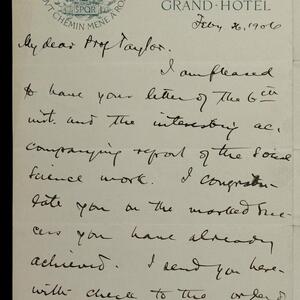 TT CHEMIN MENE A RO
SPQR
GRAND-HOTEL
Feby 26, 1906
My dear Prof Taylor.
I am pleased
to have your letter of the 6th
inst. and the interesting ac-
companying report of the Social
Science work. I congratu-
late you on the marked suc-
cess you have already
achieved. I send you here-
with check to the order of